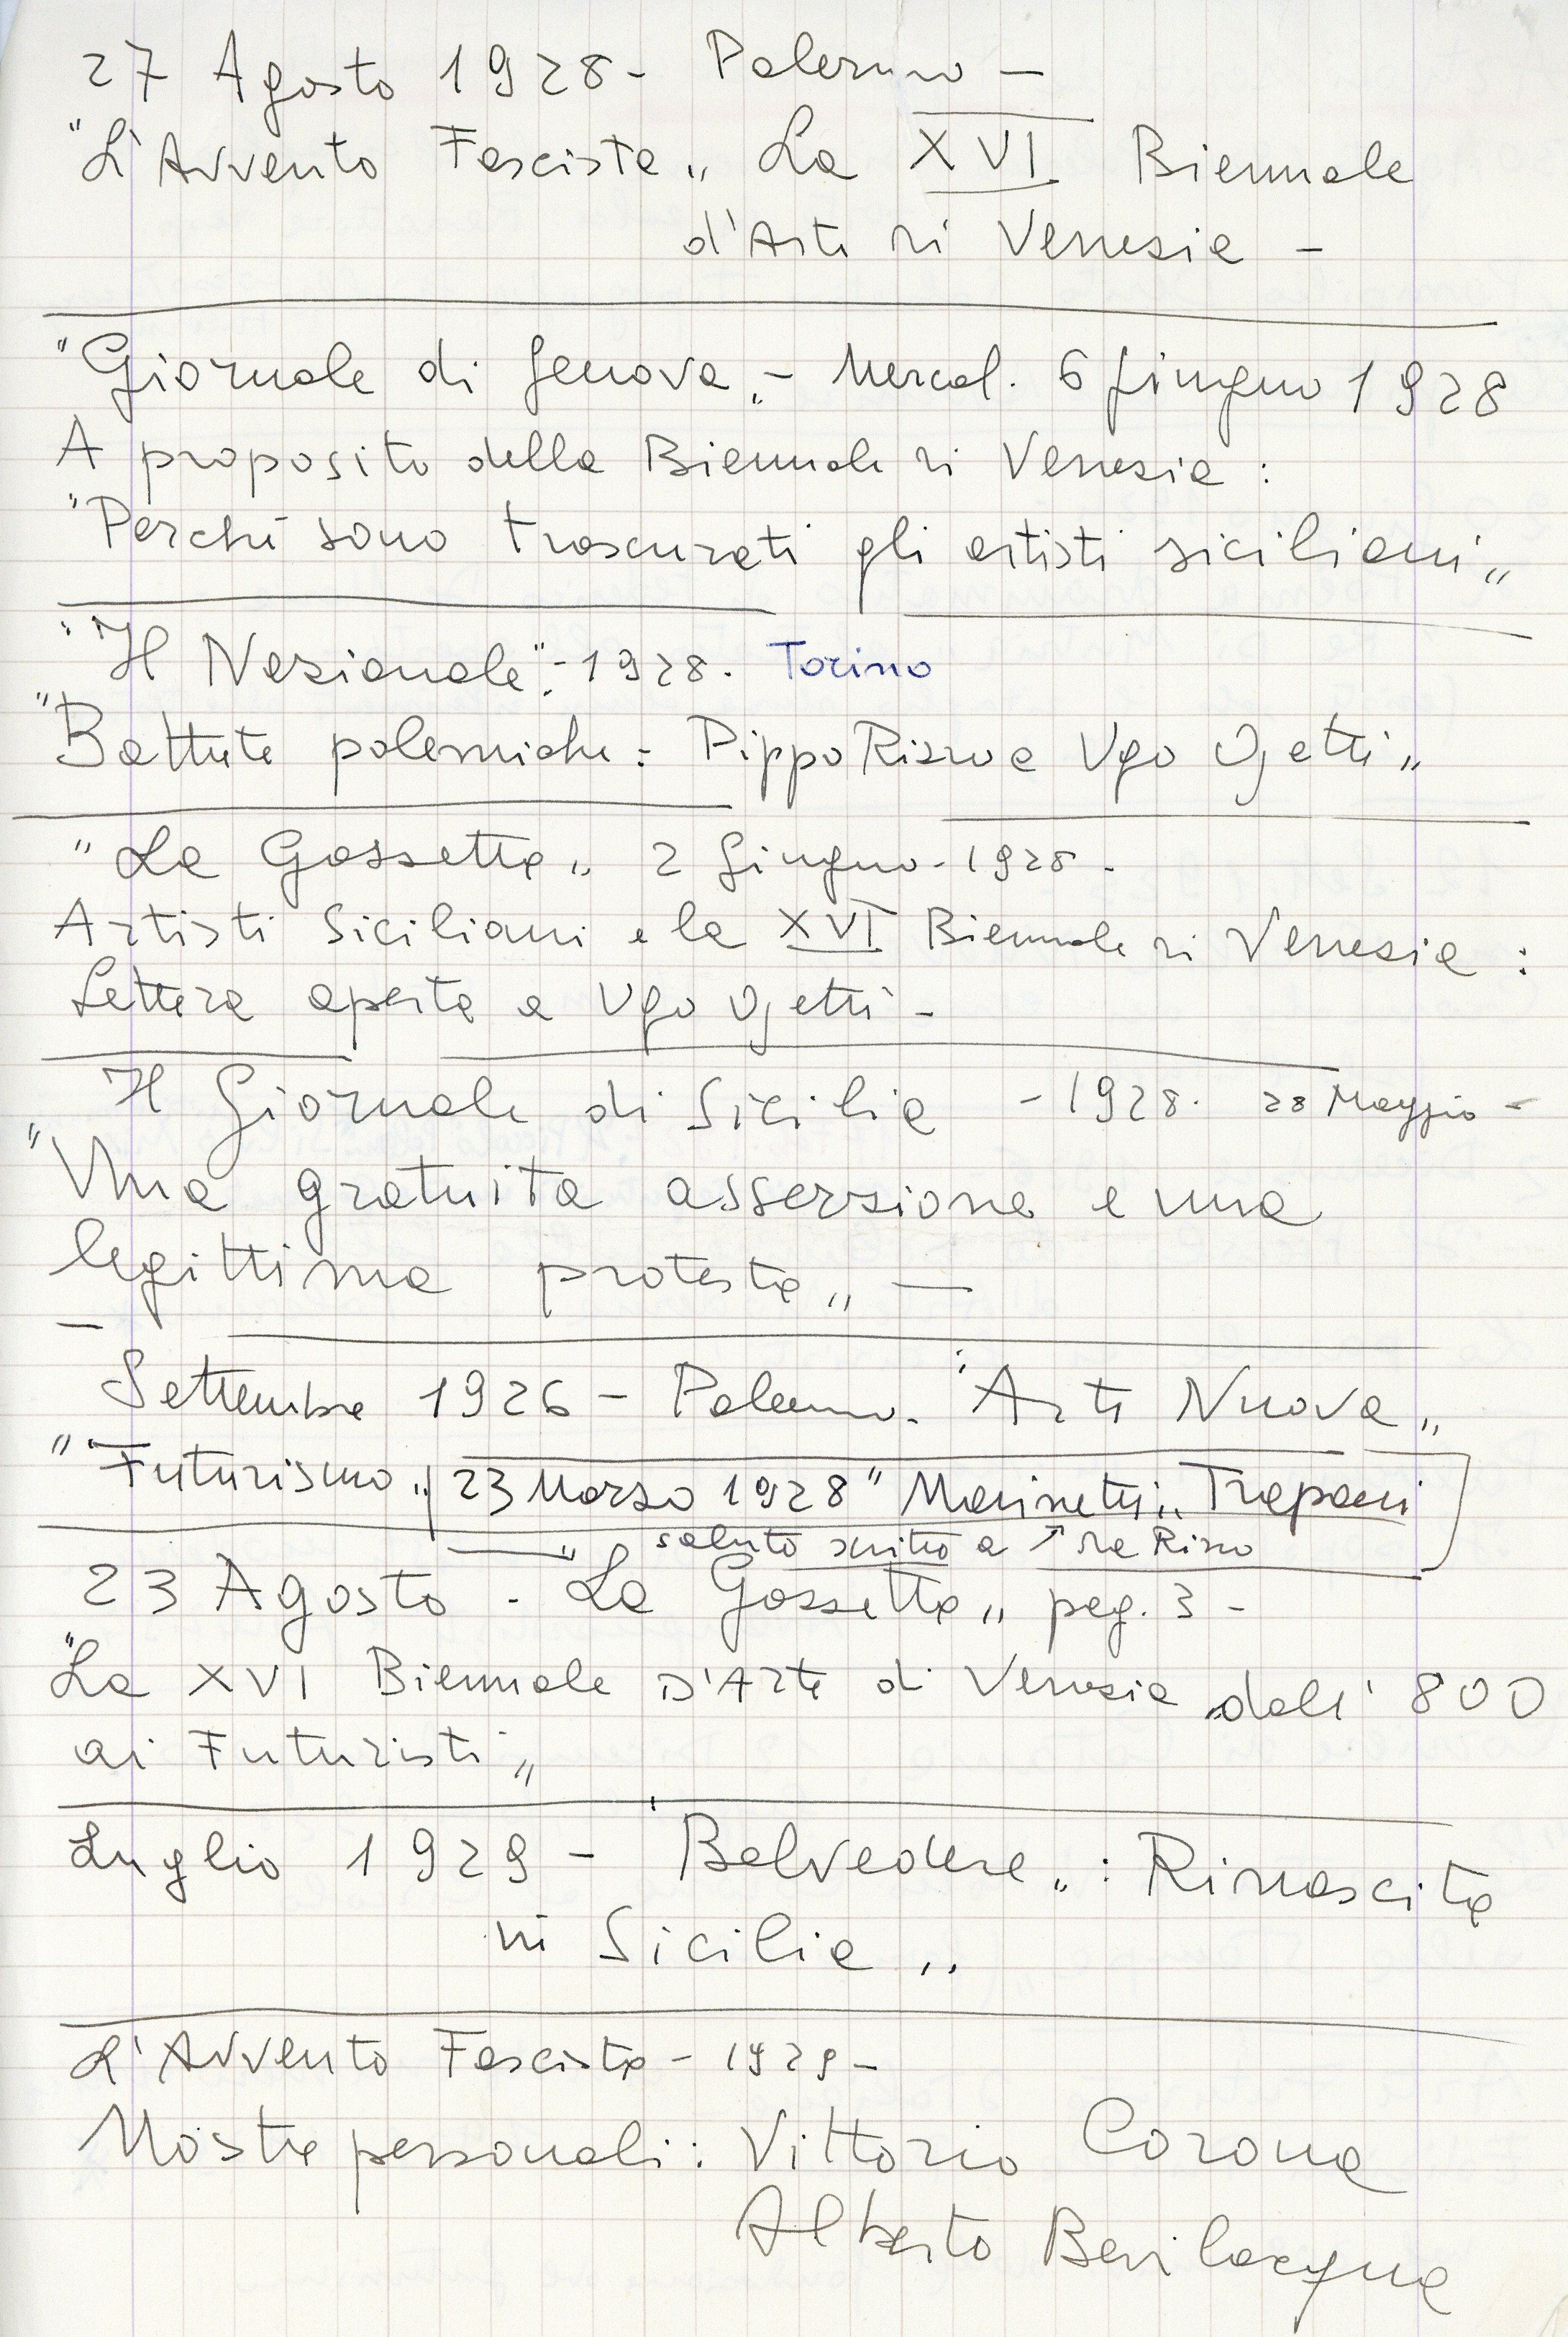 27 Agosto 1928 - Palermo -
"L'Avvento Fascista„ La XVI Biennale
d'Arte di Venezia -
"Giornale di Genova„ - Mercol. 6 Giugno 1928
A proposito della Biennale di Venezia :
"Perché sono trascurati gli artisti siciliani„
"Il Nazionale" - 1928. Torino
"Battute polemiche : Pippo Rizzo e Ugo Ojetti„
"La Gazzetta„ 2 Giugno - 1928 -
Artisti Siciliani e la XVI Biennale di Venezia :
Lettera aperta a Ugo Ojetti -
Il Giornale di Sicilia - 1928. 28 Maggio -
"Una gratuita asserzione e una
legittima protesta„ -
Settembre 1926 - Palermo. "Arte Nuova„
"Futurismo„ 23 Marzo 1928 "Marinetti„ Trapani
saluto scritto a ↗ Rizzo
23 Agosto - "La Gazzetta„ pag. 3 -
"La XVI Biennale D'Arte di Venezia dall'800
ai Futuristi„
Luglio 1929 - "Belvedere„ : Rinascita
in Sicilia„
L'Avvento Fascista - 1929 -
Mostre personali : Vittorio Corona
Alberto Bevilacqua